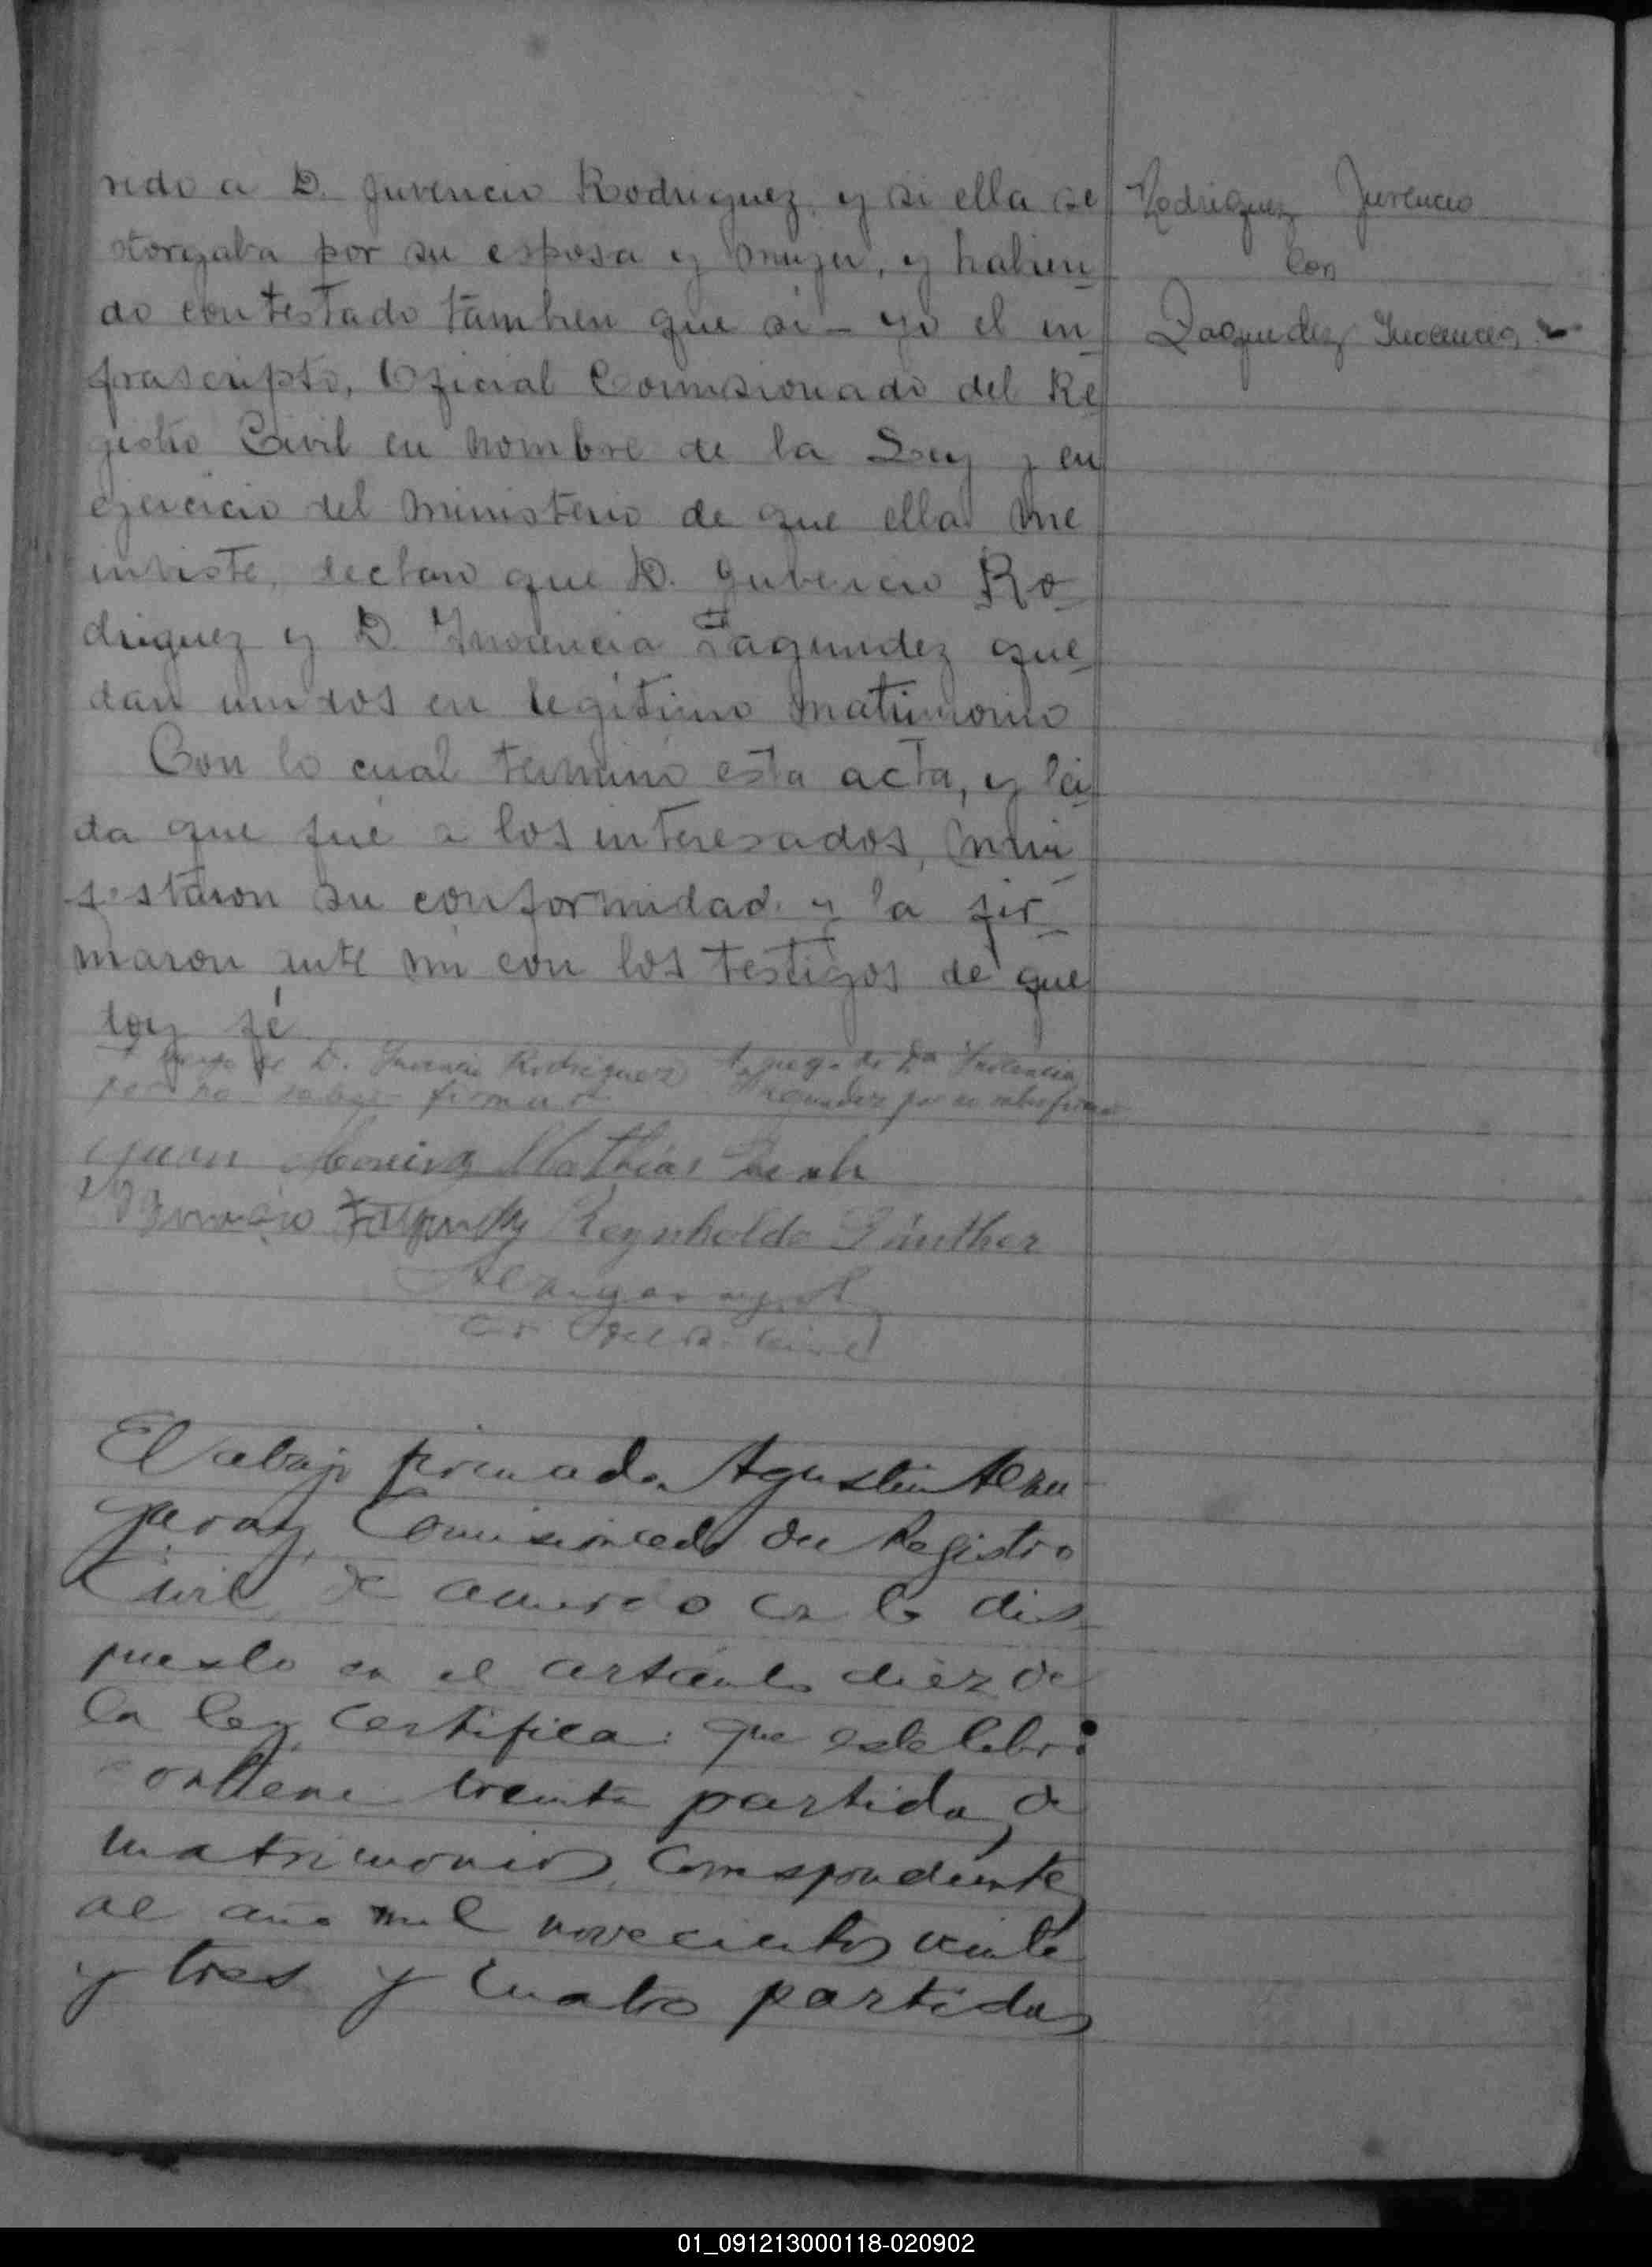 rido a D. Juvencio Rodriguez y si ella se
otorgaba por su esposa y mujer, y habien
do contestado tambien que si – yo el in
frascripto, Oficial Comisionado del Re
gistro Civil en nombre de la Ley y en
ejercicio del ministerio de que ella me
inviste, declaro que D. Juvencio Ro
driguez y D. Inocencia Fagundez que
dan unidos en legítimo matrimonio
Con lo cual terminó esta acta, y lei
da que fué a los interesados, mani
festaron su conformidad y la fir
maron ante mi con los testigos de que
doy fé
A ruego de D. Juvencio Rodriguez
por no saber firmar
A ruego de Da Inocencia
Fagundez por no saber firmar
Juan Mathias
Fagundez Reynholdo Günther
El abajo firmado Agustin Alzu
garay, Comisionado del Registro
Civil, de acuerdo con lo dis
puesto en el articulo diez de
la ley, certifica: que este libro
contiene treinta partidas de
matrimonios, correspondientes
al año mil novecientos veinte
y tres y cuatro partidas
Rodriguez Juvencio
con
Fagundez Inocencia
01_091213000118-020902